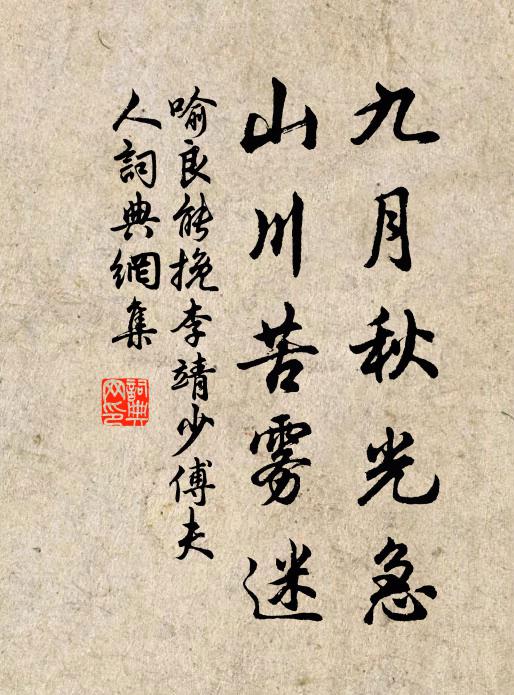 九月秋光急
山川苦雾迷
喻良能挽李靖少傅夫
人詞典網集
詞典
网印